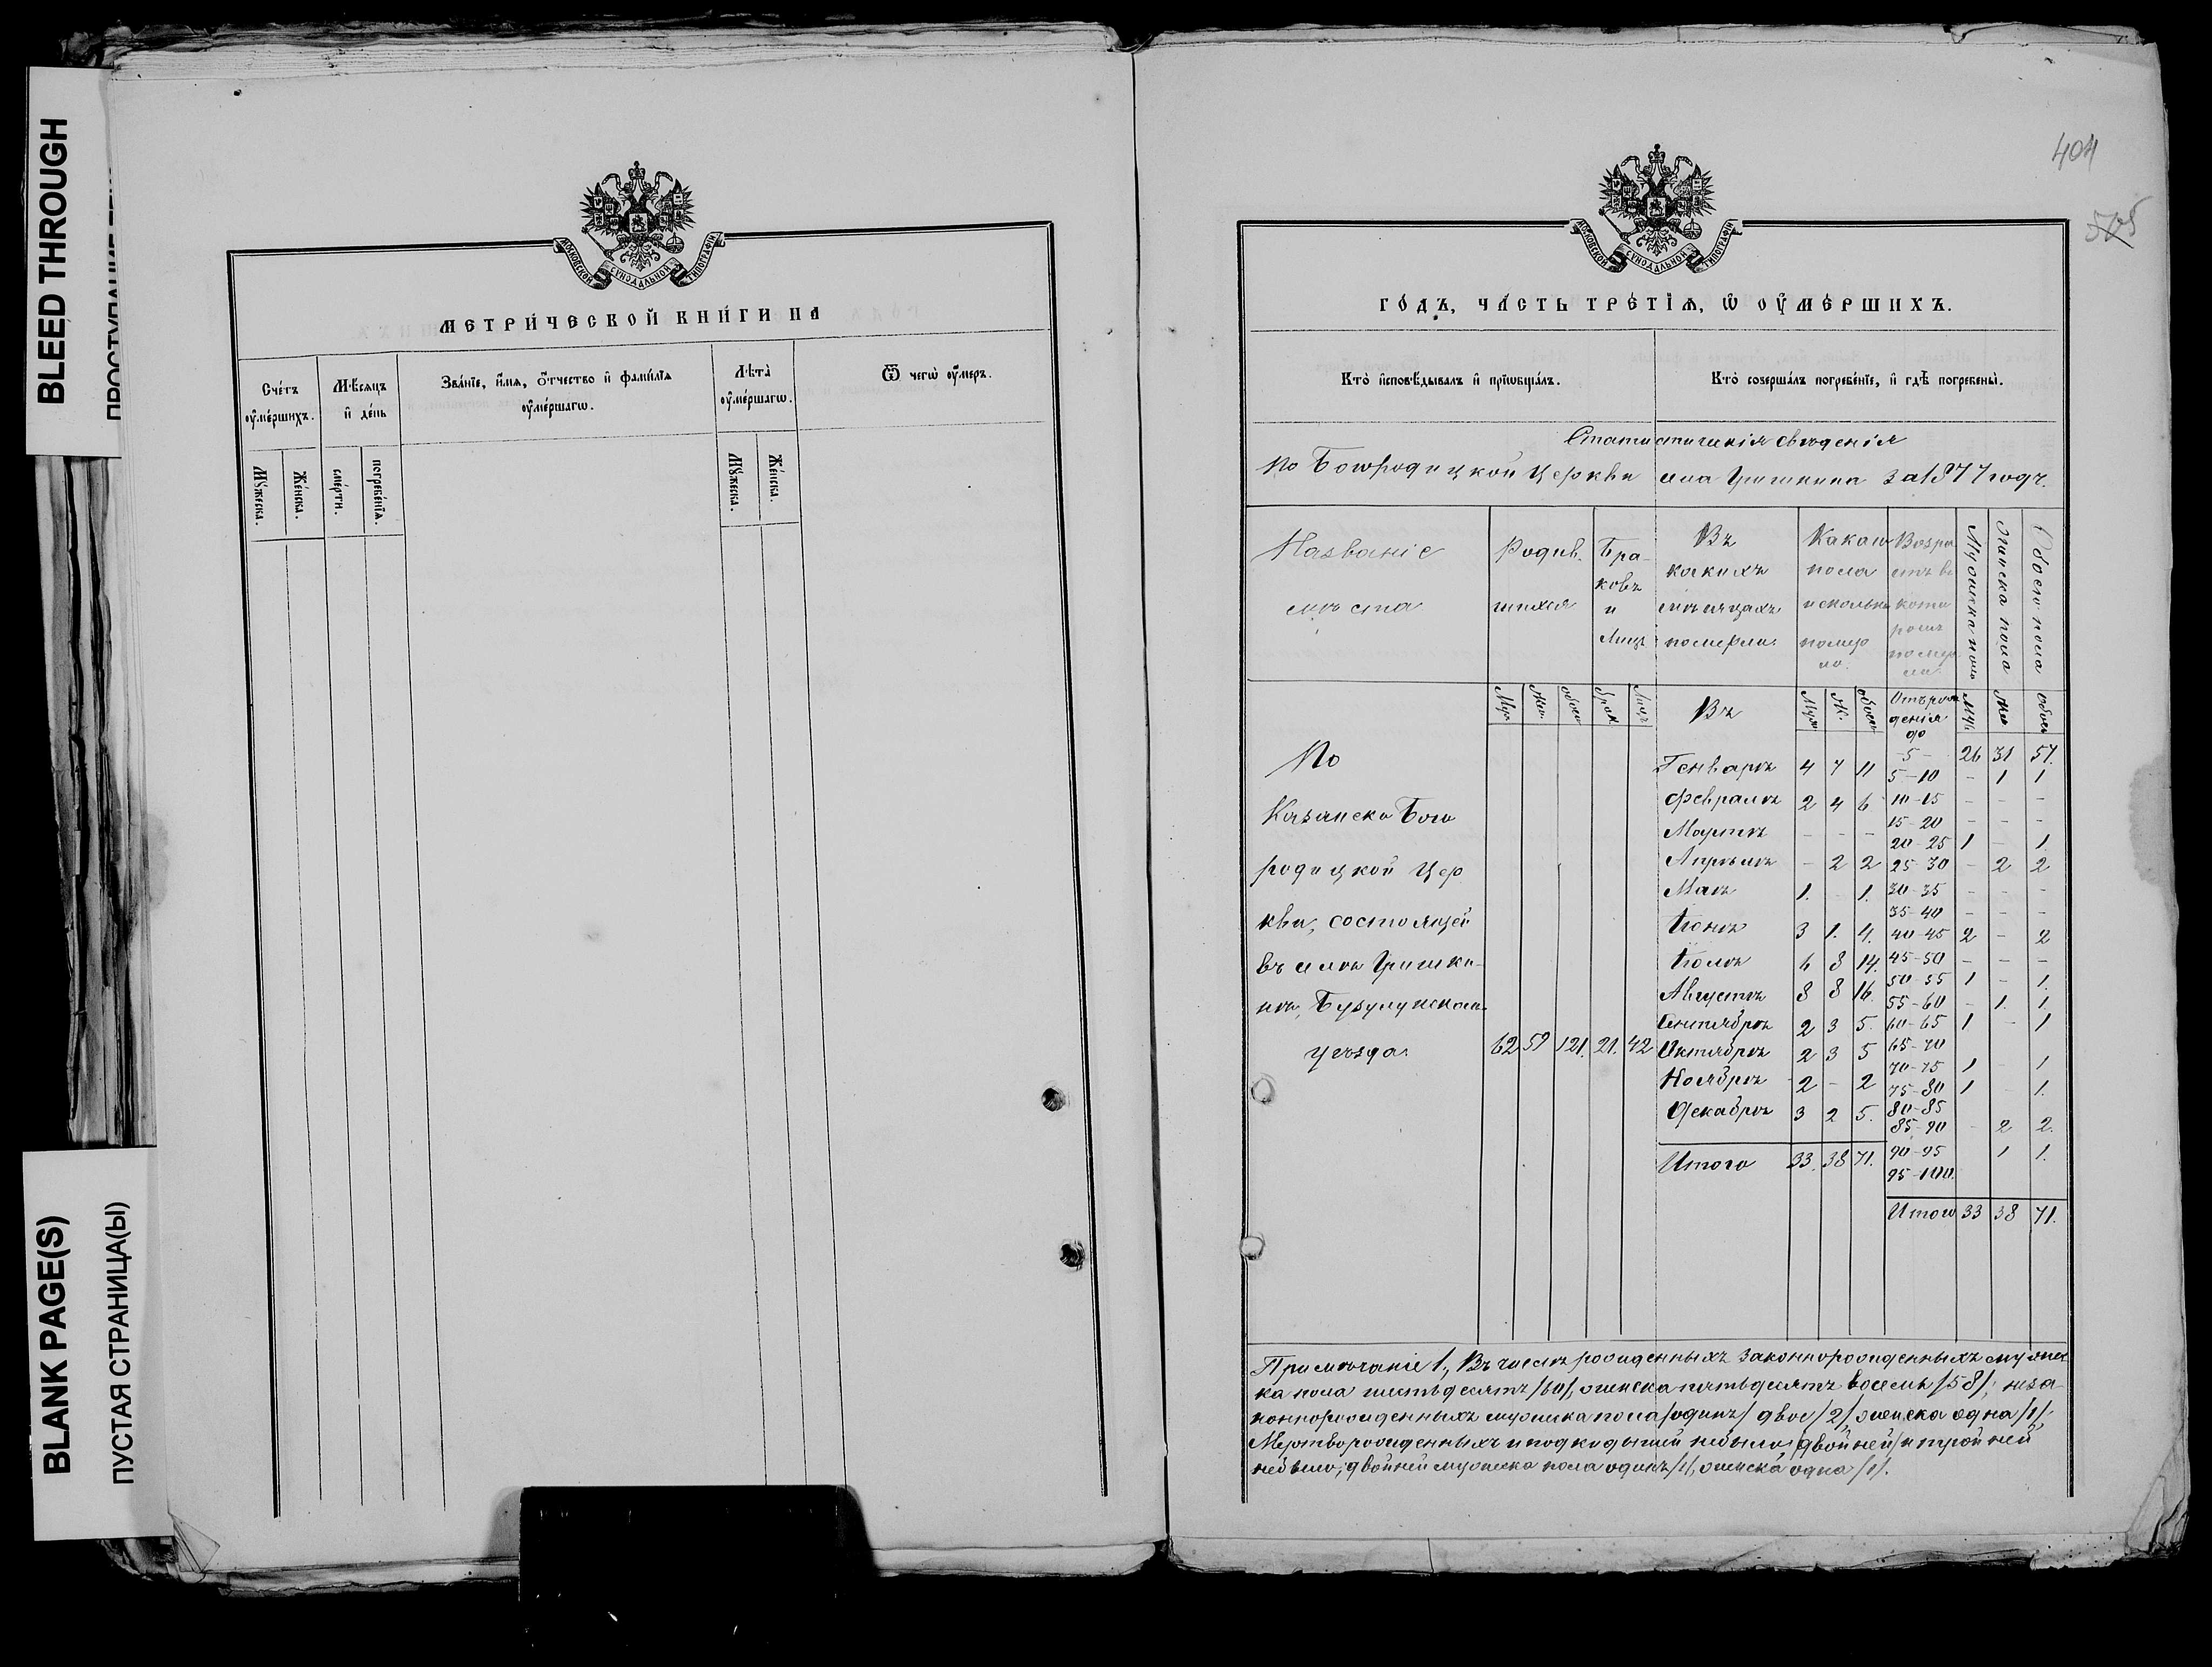 BLEED THROUGH
BLANK PAGE(S)
ПУСТАЯ СТРАНИЦА(Ы)
МОСКОВСКОЙ СѴНОДАЛЬНОЙ ТИПОГРАФІИ
МЕТРИ́ЧЕСКОЙ КНИ́ГИ НА
Сче́тъ оу҆ме́ршихъ.
Мѣ́сяцъ и҆ де́нь
Зва́нїе, и҆́мя, ѻ҆́тчество и҆ фами́лїя оу҆ме́ршагѡ.
Лѣ́та оу҆ме́ршагѡ.
Ѿ чегѡ̀ оу҆́меръ.
Мꙋ́жеска.
Же́нска.
сме́рти.
погребе́нїѧ.
Мꙋ́жеска.
Же́нска.
404
505
МОСКОВСКОЙ СѴНОДАЛЬНОЙ ТИПОГРАФІИ
ГО́ДЪ, ЧА́СТЬ ТРЕ́ТЇѦ, Ѡ҆ ОУ҆МЕ́РШИХЪ.
Кто̀ и҆сповѣ́дывалъ и҆ прїѡбща́лъ.
Кто̀ соверша́лъ погребе́нїе, и҆ гдѣ̀ погребены̀.
Статистическія свѣденія
по Богородицкой Церкви села Гришкина за 1877 годъ.
Названіе мѣста
Родившихся
Браковъ и Лицъ
Въ какихъ мѣсяцахъ померли.
Какаго пола и сколько померло.
Возрастъ въ которомъ померли.
Мужеска пола
Женска пола
Обоего пола
Муж. Жен. обоег. брак. Лицъ
Въ
Муж. Ж. обоег.
Отъ рождения до
Муж. Жен. Обоег.
По
Казанско Бого
родицкой Цер
кви, состоящей
въ селѣ Гришки-
нѣ, Бузулукскаго
уѣзда.
62 59 121. 21. 42
Генварѣ 4 7 11
Февралѣ 2 4 6
Мартѣ - - -
Апрѣлѣ - 2 2
Маѣ 1. - 1.
Іюнѣ 3 1. 4.
Іюлѣ 6 8 14.
Августѣ 8 8 16.
Сентябрѣ 2 3 5.
Октябрѣ 2 3 5
Ноябрѣ 2 - 2
Декабрѣ 3 2 5.
Итого 33. 38 71.
5 26 31 57.
5-10 - 1 1
10-15 - - -
15-20 - - -
20-25 1 - 1.
25-30 - 2 2
30-35 - - -
35-40 - - -
40-45 2 - 2
45-50 - - -
50-55 1 - 1.
55-60 - 1. 1.
60-65 1 - 1
65-70
70-75 1 - 1
75-80 1 - 1.
80-85
85-90 - 2 2.
90-95 1 1.
95-100.
Итого 33 38 71.
Примѣчаніе 1., Въ числѣ рожденныхъ законнорожденныхъ мужес
ка пола шестьдесятъ /60/, женска пятьдесятъ восемь /58/, неза
коннорожденныхъ мужеска пола /одинъ/ двое /2/, женска одна /1/.
Мертворожденныхъ и подкидышей небыло; /двойней/ и тройней
небыло; двойней мужеска пола одинъ /1/, женска одна /1/.